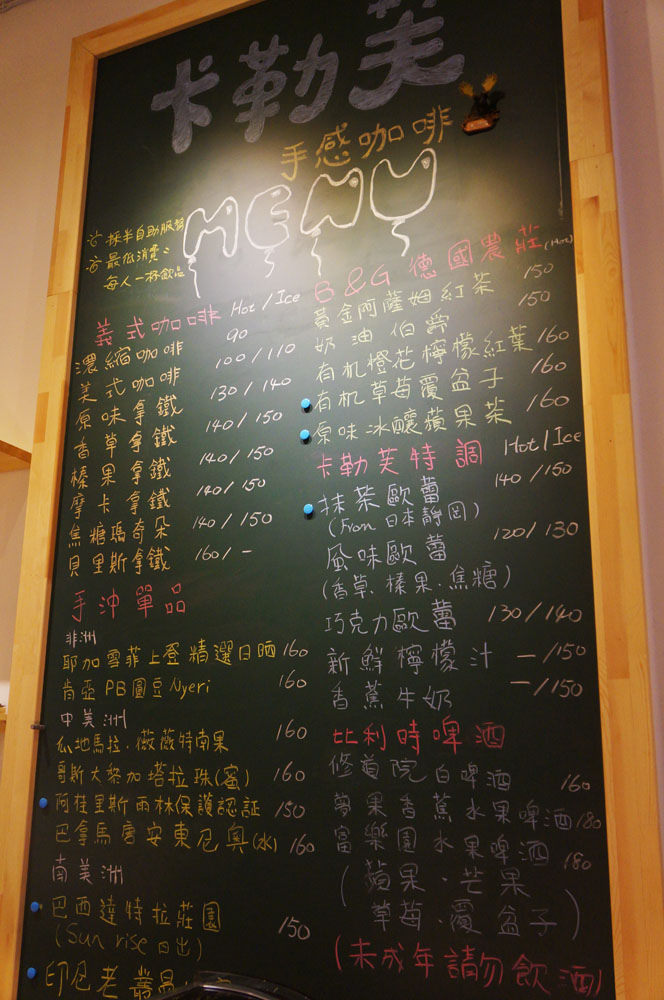 卡勒芙
手感咖啡
MENU
採半自助服務
最低消費：
每人一杯飲品
義式咖啡 Hot / Ice
濃縮咖啡 90
美式咖啡 100 / 110
原味拿鐵 130 / 140
香草拿鐵 140 / 150
榛果拿鐵 140 / 150
摩卡拿鐵 140 / 150
焦糖瑪奇朵 140 / 150
貝里斯拿鐵 160 / —
手沖單品
非洲
耶加雪菲上登精選日晒 160
肯亞PB圓豆Nyeri 160
中美洲
瓜地馬拉．薇薇特南果 160
哥斯大黎加塔拉珠(蜜) 160
阿桂里斯雨林保護認証 150
巴拿馬唐安東尼奧(水) 160
南美洲
巴西達特拉莊園 150
(Sun rise 日出)
印尼老
B & G 德國農莊 (Hot)
黃金阿薩姆紅茶 150
奶油伯爵 150
有机橙花檸檬紅葉 160
有机草莓覆盆子 160
原味冰釀蘋果茶 160
卡勒芙特調 Hot / Ice
抹茶歐蕾 140 / 150
(From 日本靜岡)
風味歐蕾 120 / 130
(香草．榛果．焦糖)
巧克力歐蕾 130 / 140
新鮮檸檬汁 — / 150
香蕉牛奶 — / 150
比利時啤酒
修道院白啤酒 160
夢果香蕉水果啤酒 180
富樂園水果啤酒 180
(蘋果．芒果
草莓．覆盆子)
(未成年請勿飲酒)